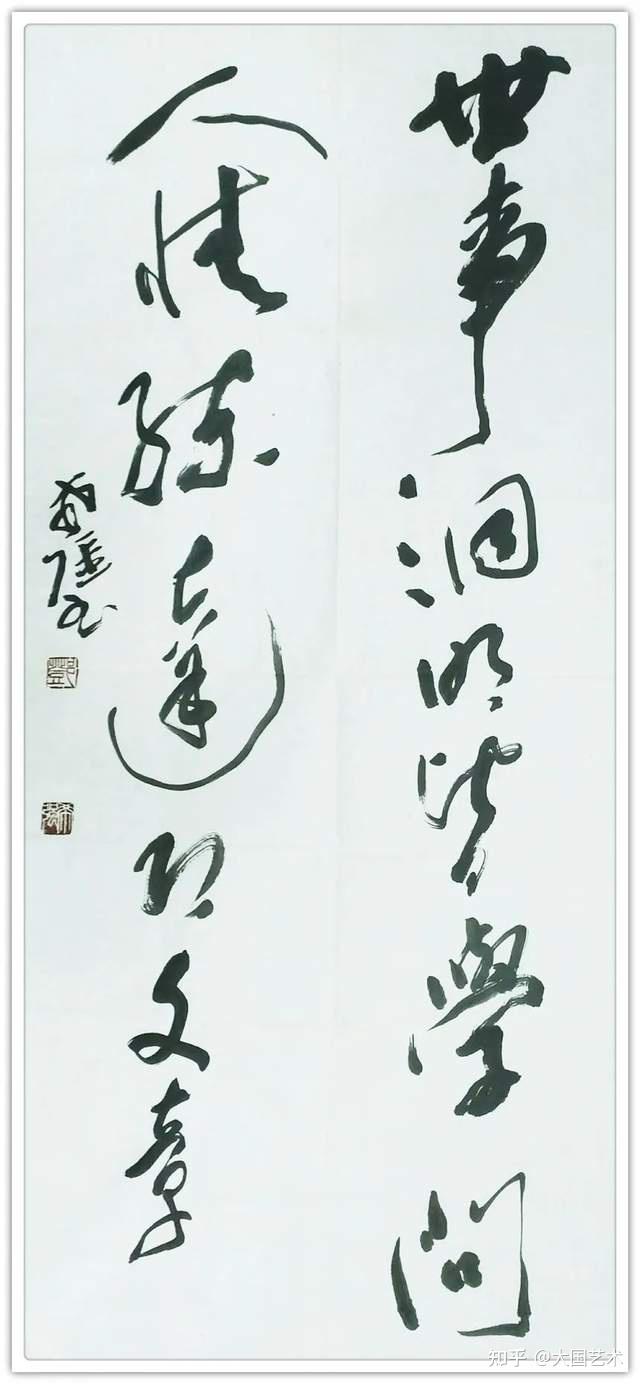 世事洞明皆學問
人情練達即文章
知乎 @大国艺术